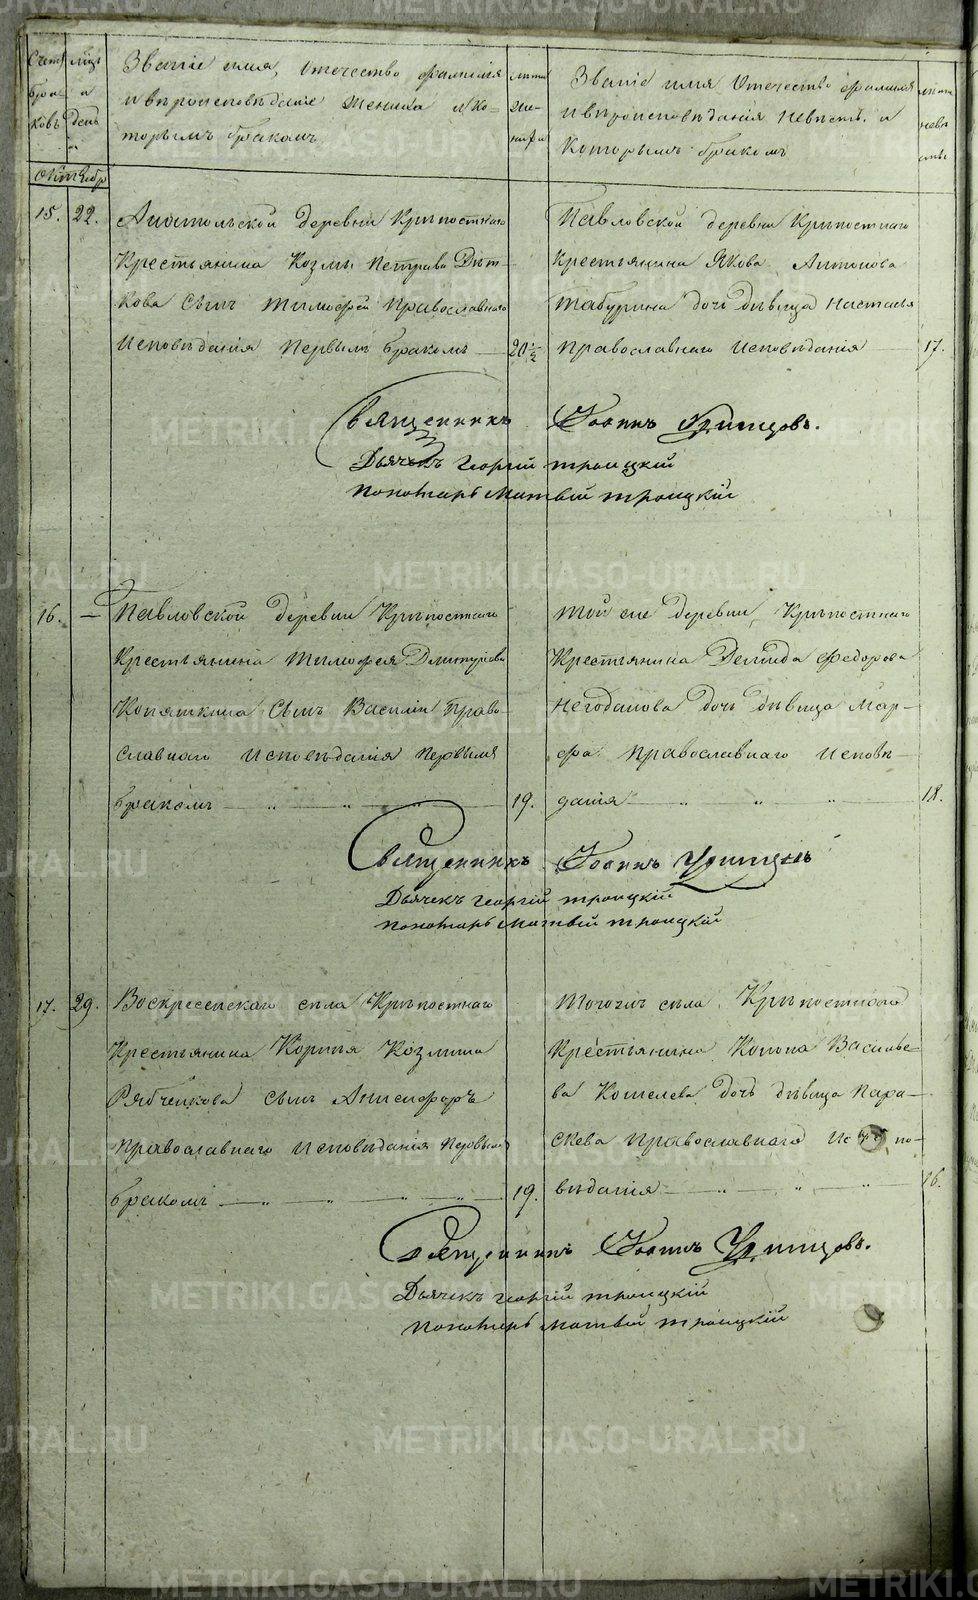 Счетъ браковъ
мѣцъ и день
Званіе имя, Отечество фамилія
и вѣроисповѣданіе жениха и ко-
торымъ бракомъ
лѣта жениха
Званіе имя Отечество фамилія
и вѣроисповѣданія невѣсты. и
Которымъ бракомъ
лѣта невѣсты
Октябр
15. 22. Анатольской деревни Крѣпостнаго
Крестьянина Козмы Петрова Дѣт-
кова сынъ Тимофей Православнаго
Исповѣданія Первымъ бракомъ 20 1/2
Павловской деревни Крѣпостнаго
Крестьянина Якова Антонова
Табурина дочь дѣвица Настасья
Православнаго Исповѣданія 17.
Священникъ Іоаннъ Удинцовъ.
Дьячекъ Георгій Троицкій
Пономарь Матвѣй Троицкій
16. — Павловской деревни Крѣпостнаго
Крестьянина Тимофея Дмитріева
Копяшкина Сынъ Василіи Право-
славнаго Исповѣданія Первымъ
бракомъ 19.
Той же деревни, Крѣпостнаго
Крестьянина Демида Федорова
Негодяпова дочь дѣвица Мар-
фа Православнаго Исповѣ-
данія 18.
Священникъ Іоаннъ Удинцовъ
Дьячекъ Георгій Троицкій
Пономарь Матвѣй Троицкій
17. 29. Воскресенскаго села Крѣпостнаго
Крестьянина Корнья Козмина
Рябченкова сынъ Анисифоръ
Православнаго Исповѣданія Первымъ
бракомъ 19.
Тогожъ села Крѣпостного
Крестьянина Конона Василье-
ва Кошелева дочь дѣвица Пара-
скева Православнаго Испо-
вѣданія 16.
Священникъ Іоаннъ Удинцовъ.
Дьячекъ Георгій Троицкій
Пономарь Матвѣй Троицкій
METRIKI.GASO-URAL.RU